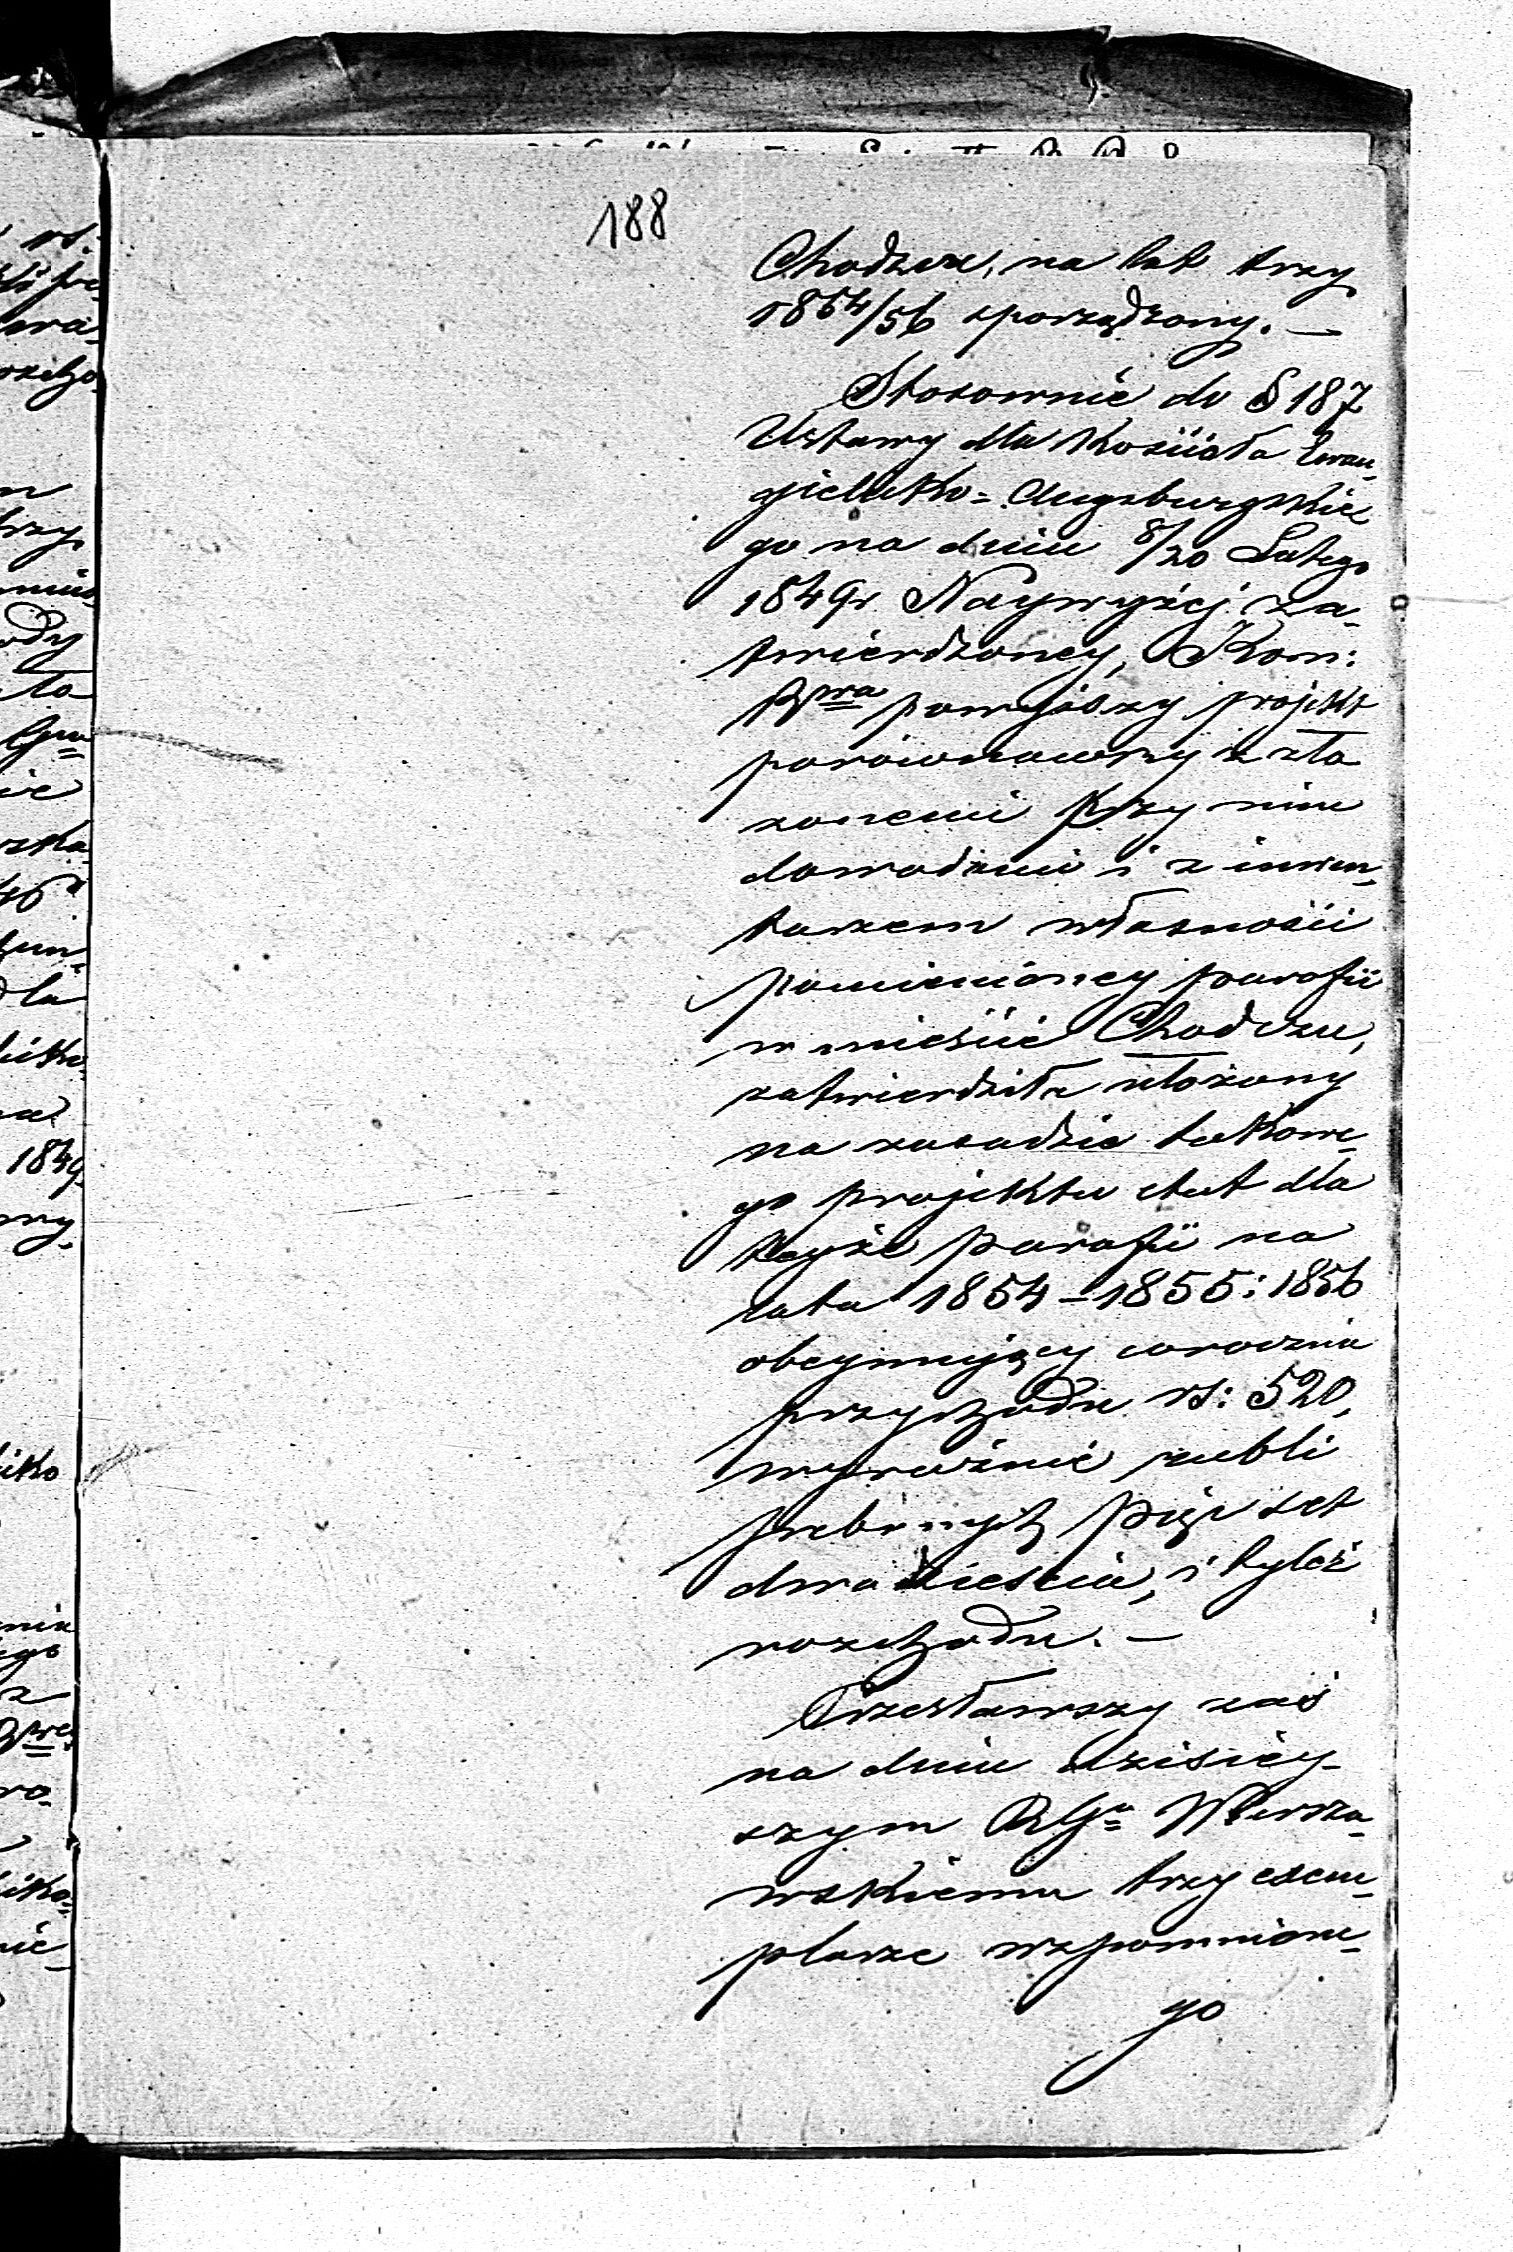 188
Chodczu, na lat trzy
1854/56 sporządzony. —
Stosownie do § 187
Ustawy dla Kościoła Ewan-
gielicko=Augsburgskie
go na dniu 8/20 Lutego
1849r Naywyżej za-
twierdzoney, Kom:
Rząwa powyższy projekt
porównawszy z zło
zonemi przy nim
dowodami i z inwen-
tarzem własności
pomienioney parafii
w mieście Chodczu,
zatwierdziła ułożony
na zasadzie takowe-
go projektu etat dla
teyże parafii na
lata 1854 – 1855 i 1856
obeymujący corocznie
przychodu rs: 520,
wyraźnie rubli
srebrnych pięć set
dwadzieścia, i tyleż
rozchodu. —
Przesławszy zaś
na dniu dzisiey-
szym RGu Warsza-
wskiemu trzy exem-
plarze wspomnione-
go